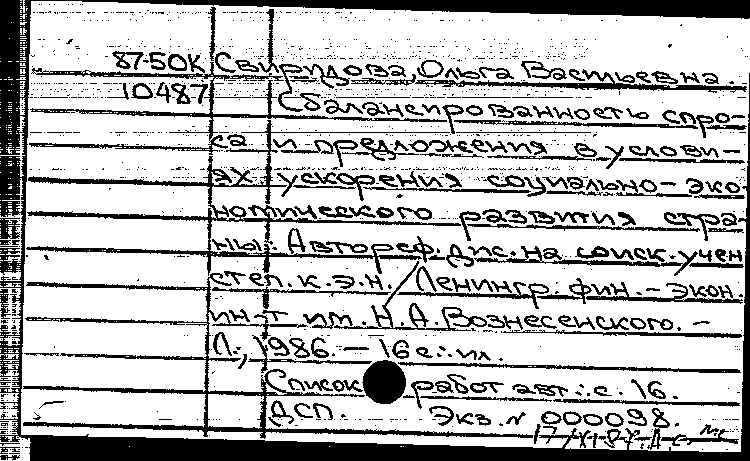 87-50К Свиридова, Ольга Васильевна.
10487 Сбалансированность спро-
са и предложения в услови-
ях ускорения социально-эко-
номического развития стра-
ны: Автореф. дис. на соиск. учен
степ. к.э.н. / Ленингр. фин.-экон.
ин-т им. Н.А. Вознесенского. -
Л., 1986. - 16 с.: ил.
Список работ авт.: с. 16.
ДСП. Экз. N 000098.